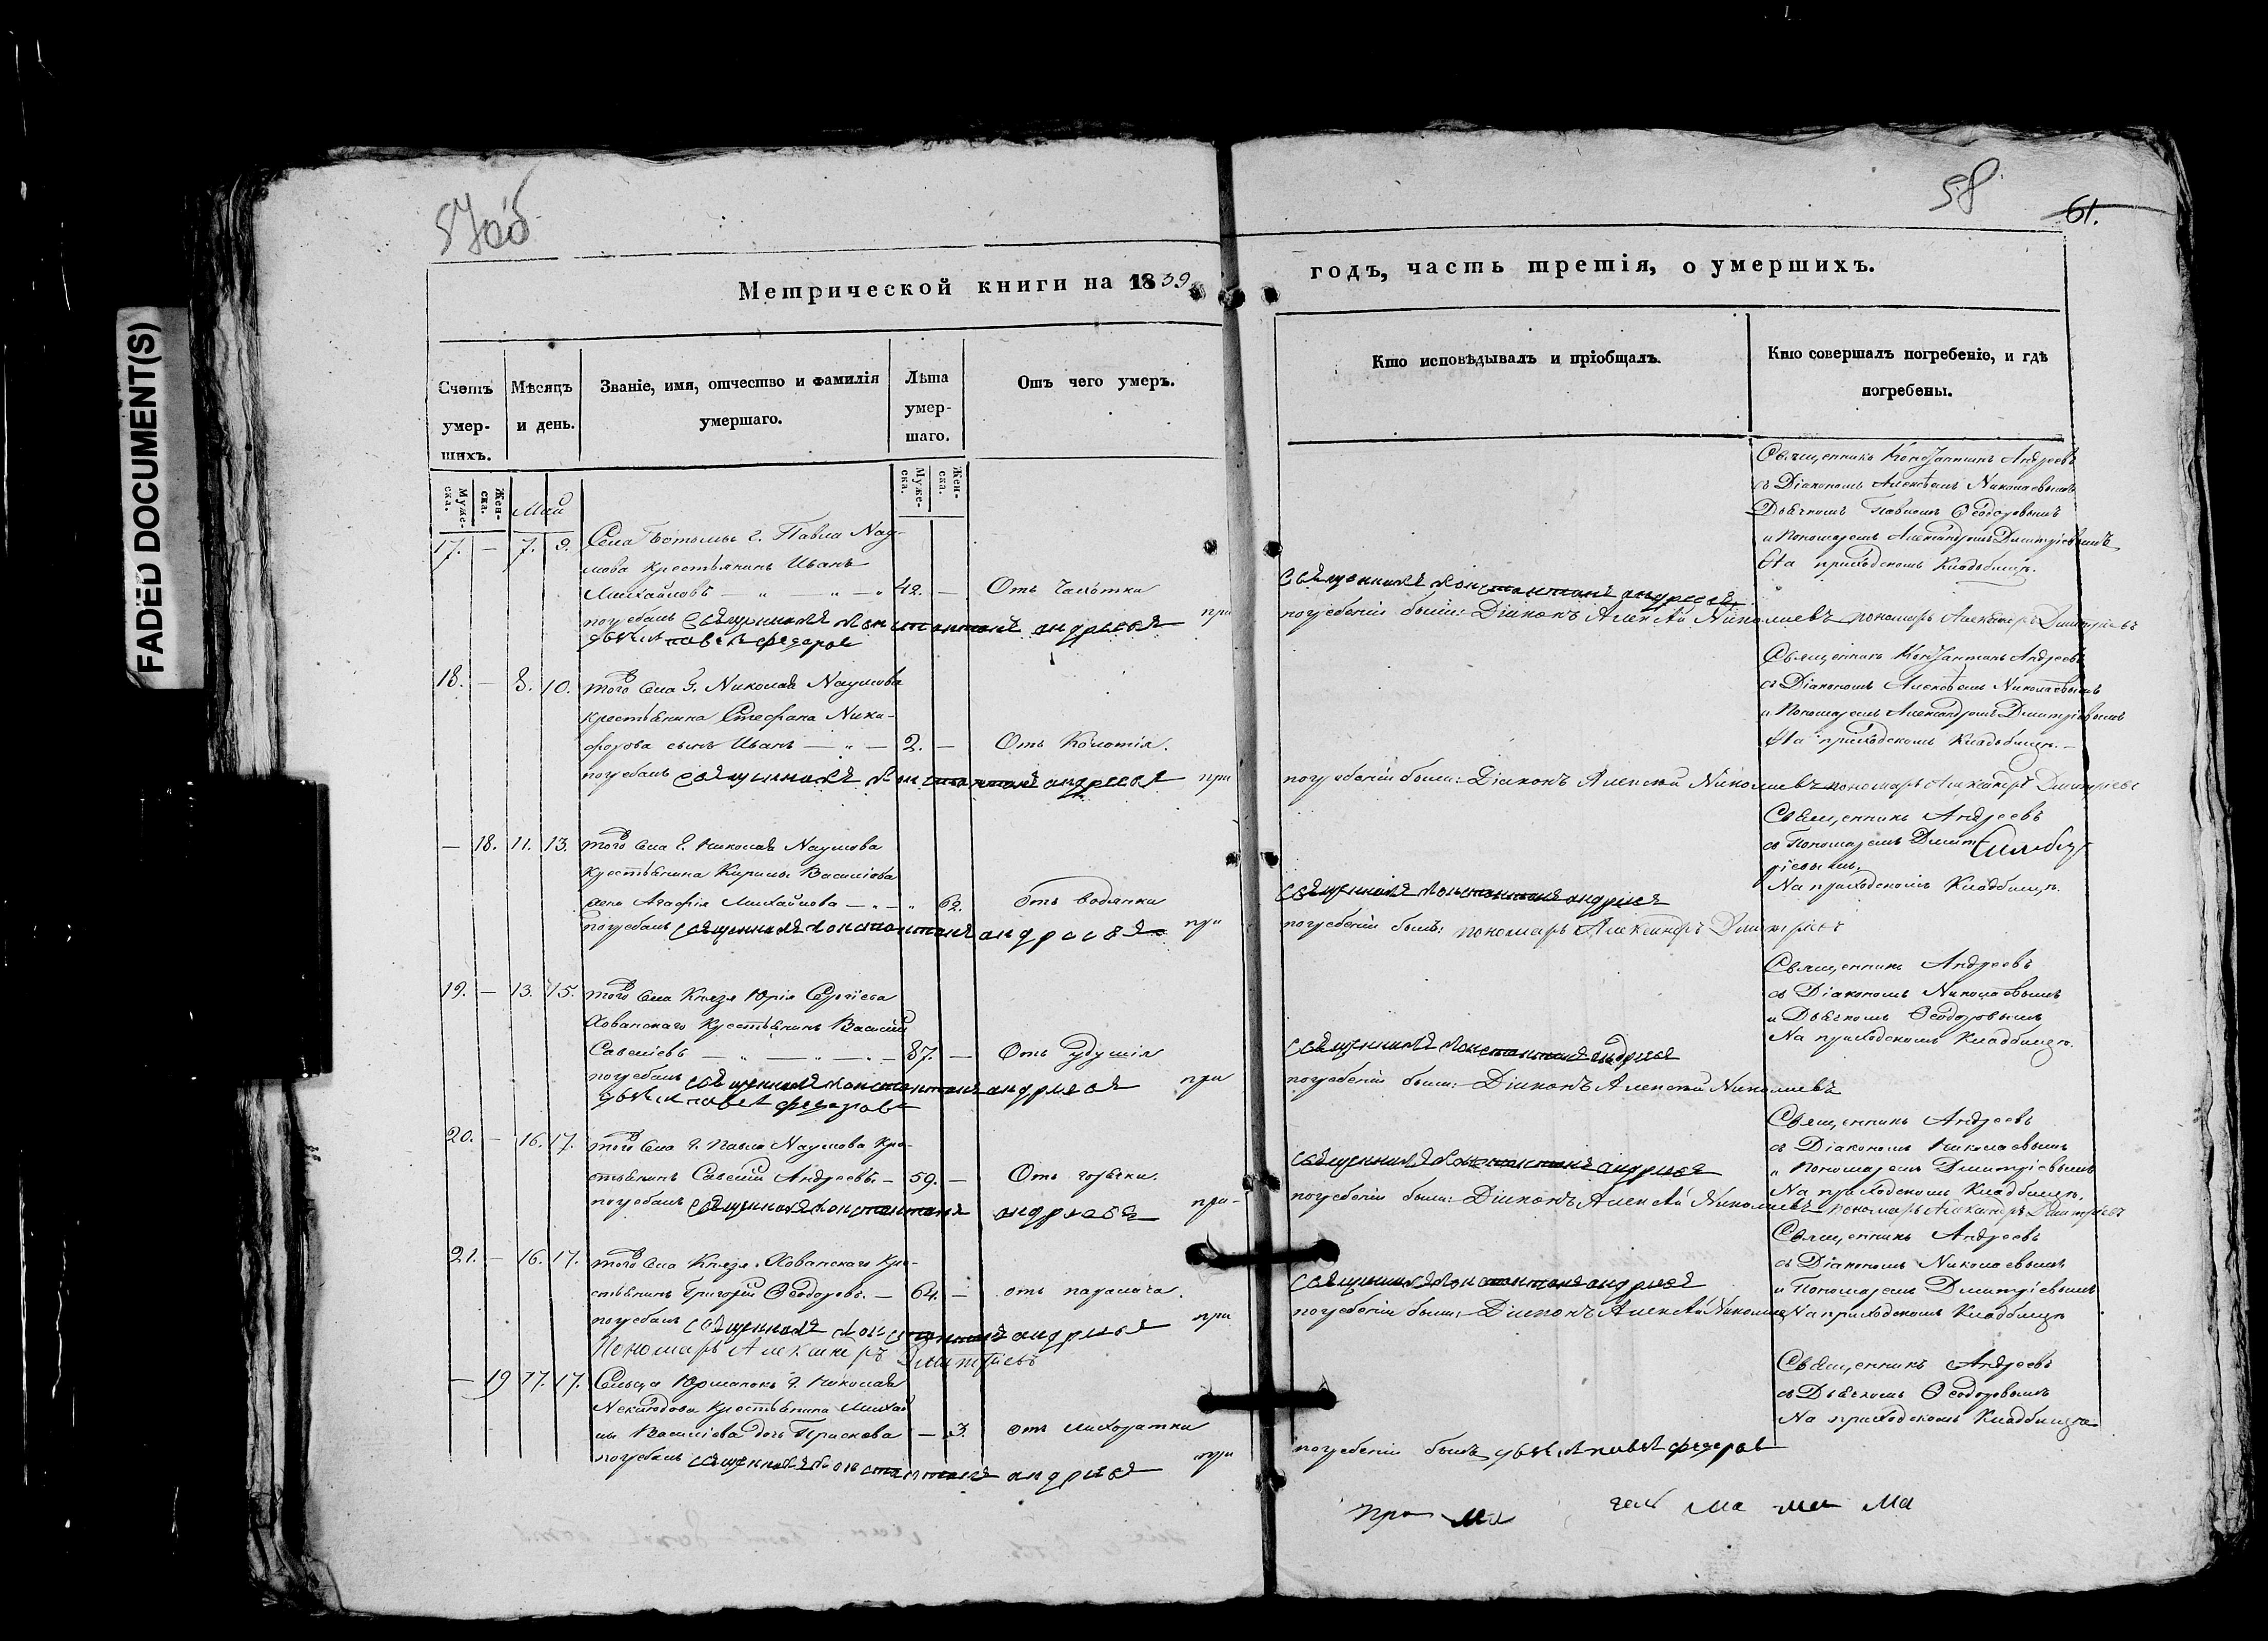 FADED DOCUMENT(S)
57об
58
61.
Метрической книги на 1839
годъ, часть третія, о умершихъ.
Счетъ умер-
шихъ.
Мѣсяцъ
и день.
Званіе, имя, отчество и фамилія
умершаго.
Лѣта
умер-
шаго.
Отъ чего умеръ.
Кто исповѣдывалъ и пріобщалъ.
Кто совершалъ погребеніе, и гдѣ
погребены.
Муже-
ска.
Жен-
ска.
Муже-
ска.
Жен-
ска.
Май
17. — 7. 9. Села Ботьмы г. Павла Нау-
мова крестьянинъ Иванъ
Михайловъ — 42. — Отъ чахотки
погребалъ священникъ Константинъ Андреевъ при
дьячекъ Павелъ Федоровъ
священникъ Константинъ Андреевъ
погребеніи были: Діаконъ Алексѣй Николаевъ пономарь Александръ Димитріевъ
Священникъ Константинъ Андреевъ
съ Діакономъ Алексѣемъ Николаевымъ
Дьячкомъ Павломъ Ѳеодоровымъ
и Пономаремъ Александромъ Димитріевымъ
На приходскомъ Кладбищѣ.
18. — 8. 10. того села г. Николая Наумова
крестьянина Стефана Ники-
форова сынъ Иванъ — 2. — Отъ
погребалъ священникъ Константинъ Андреевъ при
погребеніи были: Діаконъ Алексѣй Николаевъ пономарь Александръ Димитріевъ
Священникъ Константинъ Андреевъ
съ Діакономъ Алексѣемъ Николаевымъ
и Пономаремъ Александромъ Димитріевымъ
На приходскомъ Кладбищѣ. —
— 18. 11. 13. того села г. Николая Наумова
крестьянина Кирилы Васильева
жена Агафія Михайлова — 62. Отъ водянки
погребалъ священникъ Константинъ Андреевъ при
священникъ Константинъ Андреевъ
погребеніи былъ: пономарь Александръ Димитріевъ
Священникъ Андреевъ
съ Пономаремъ Димит
ріевымъ,
На приходскомъ Кладбищѣ.
19. — 13. 15. того села Князя Юрія Сергіева
Хованскаго Крестьянинъ Василій
Савельевъ — 87. — Отъ удушія
погребалъ священникъ Константинъ Андреевъ при
дьячекъ Павелъ Федоровъ
священникъ Константинъ Андреевъ
погребеніи были: Діаконъ Алексѣй Николаевъ
Священникъ Андреевъ
съ Діакономъ Николаевымъ
и Дьячкомъ Ѳеодоровымъ
На приходскомъ Кладбищѣ.
20. — 16. 17. того села г. Павла Наумова Кре-
стьянинъ Савелій Андреевъ. — 59. — Отъ горячки.
погребалъ священникъ Константинъ Андреевъ при-
священникъ Константинъ Андреевъ
погребеніи были: Діаконъ Алексѣй Николаевъ пономарь Александръ Димитріевъ
Священникъ Андреевъ
съ Діакономъ Николаевымъ
и Пономаремъ Димитріевымъ
На приходскомъ Кладбищѣ.
21. — 16. 17. того села Князя Хованскаго Кре-
стьянинъ Григорій Ѳеодоровъ. — 64. — отъ паралича.
погребалъ священникъ Константинъ Андреевъ при
Пономарь Александръ Димитріевъ
священникъ Константинъ Андреевъ
погребеніи были: Діаконъ Алексѣй Николаевъ
Священникъ Андреевъ
съ Діакономъ Николаевымъ
и Пономаремъ Димитріевымъ
На приходскомъ Кладбищѣ
— 19 17. 17. Сельца Юрманокъ г. Николая
Неклюдова крестьянина Михай
лы Васильева дочь Прасковья — 3. отъ лихорадки
погребалъ священникъ Константинъ Андреевъ при
погребеніи былъ дьячекъ Павелъ Федоровъ
Священникъ Андреевъ
съ Дьячкомъ Ѳеодоровымъ
На приходскомъ Кладбищѣ
ма ма ма